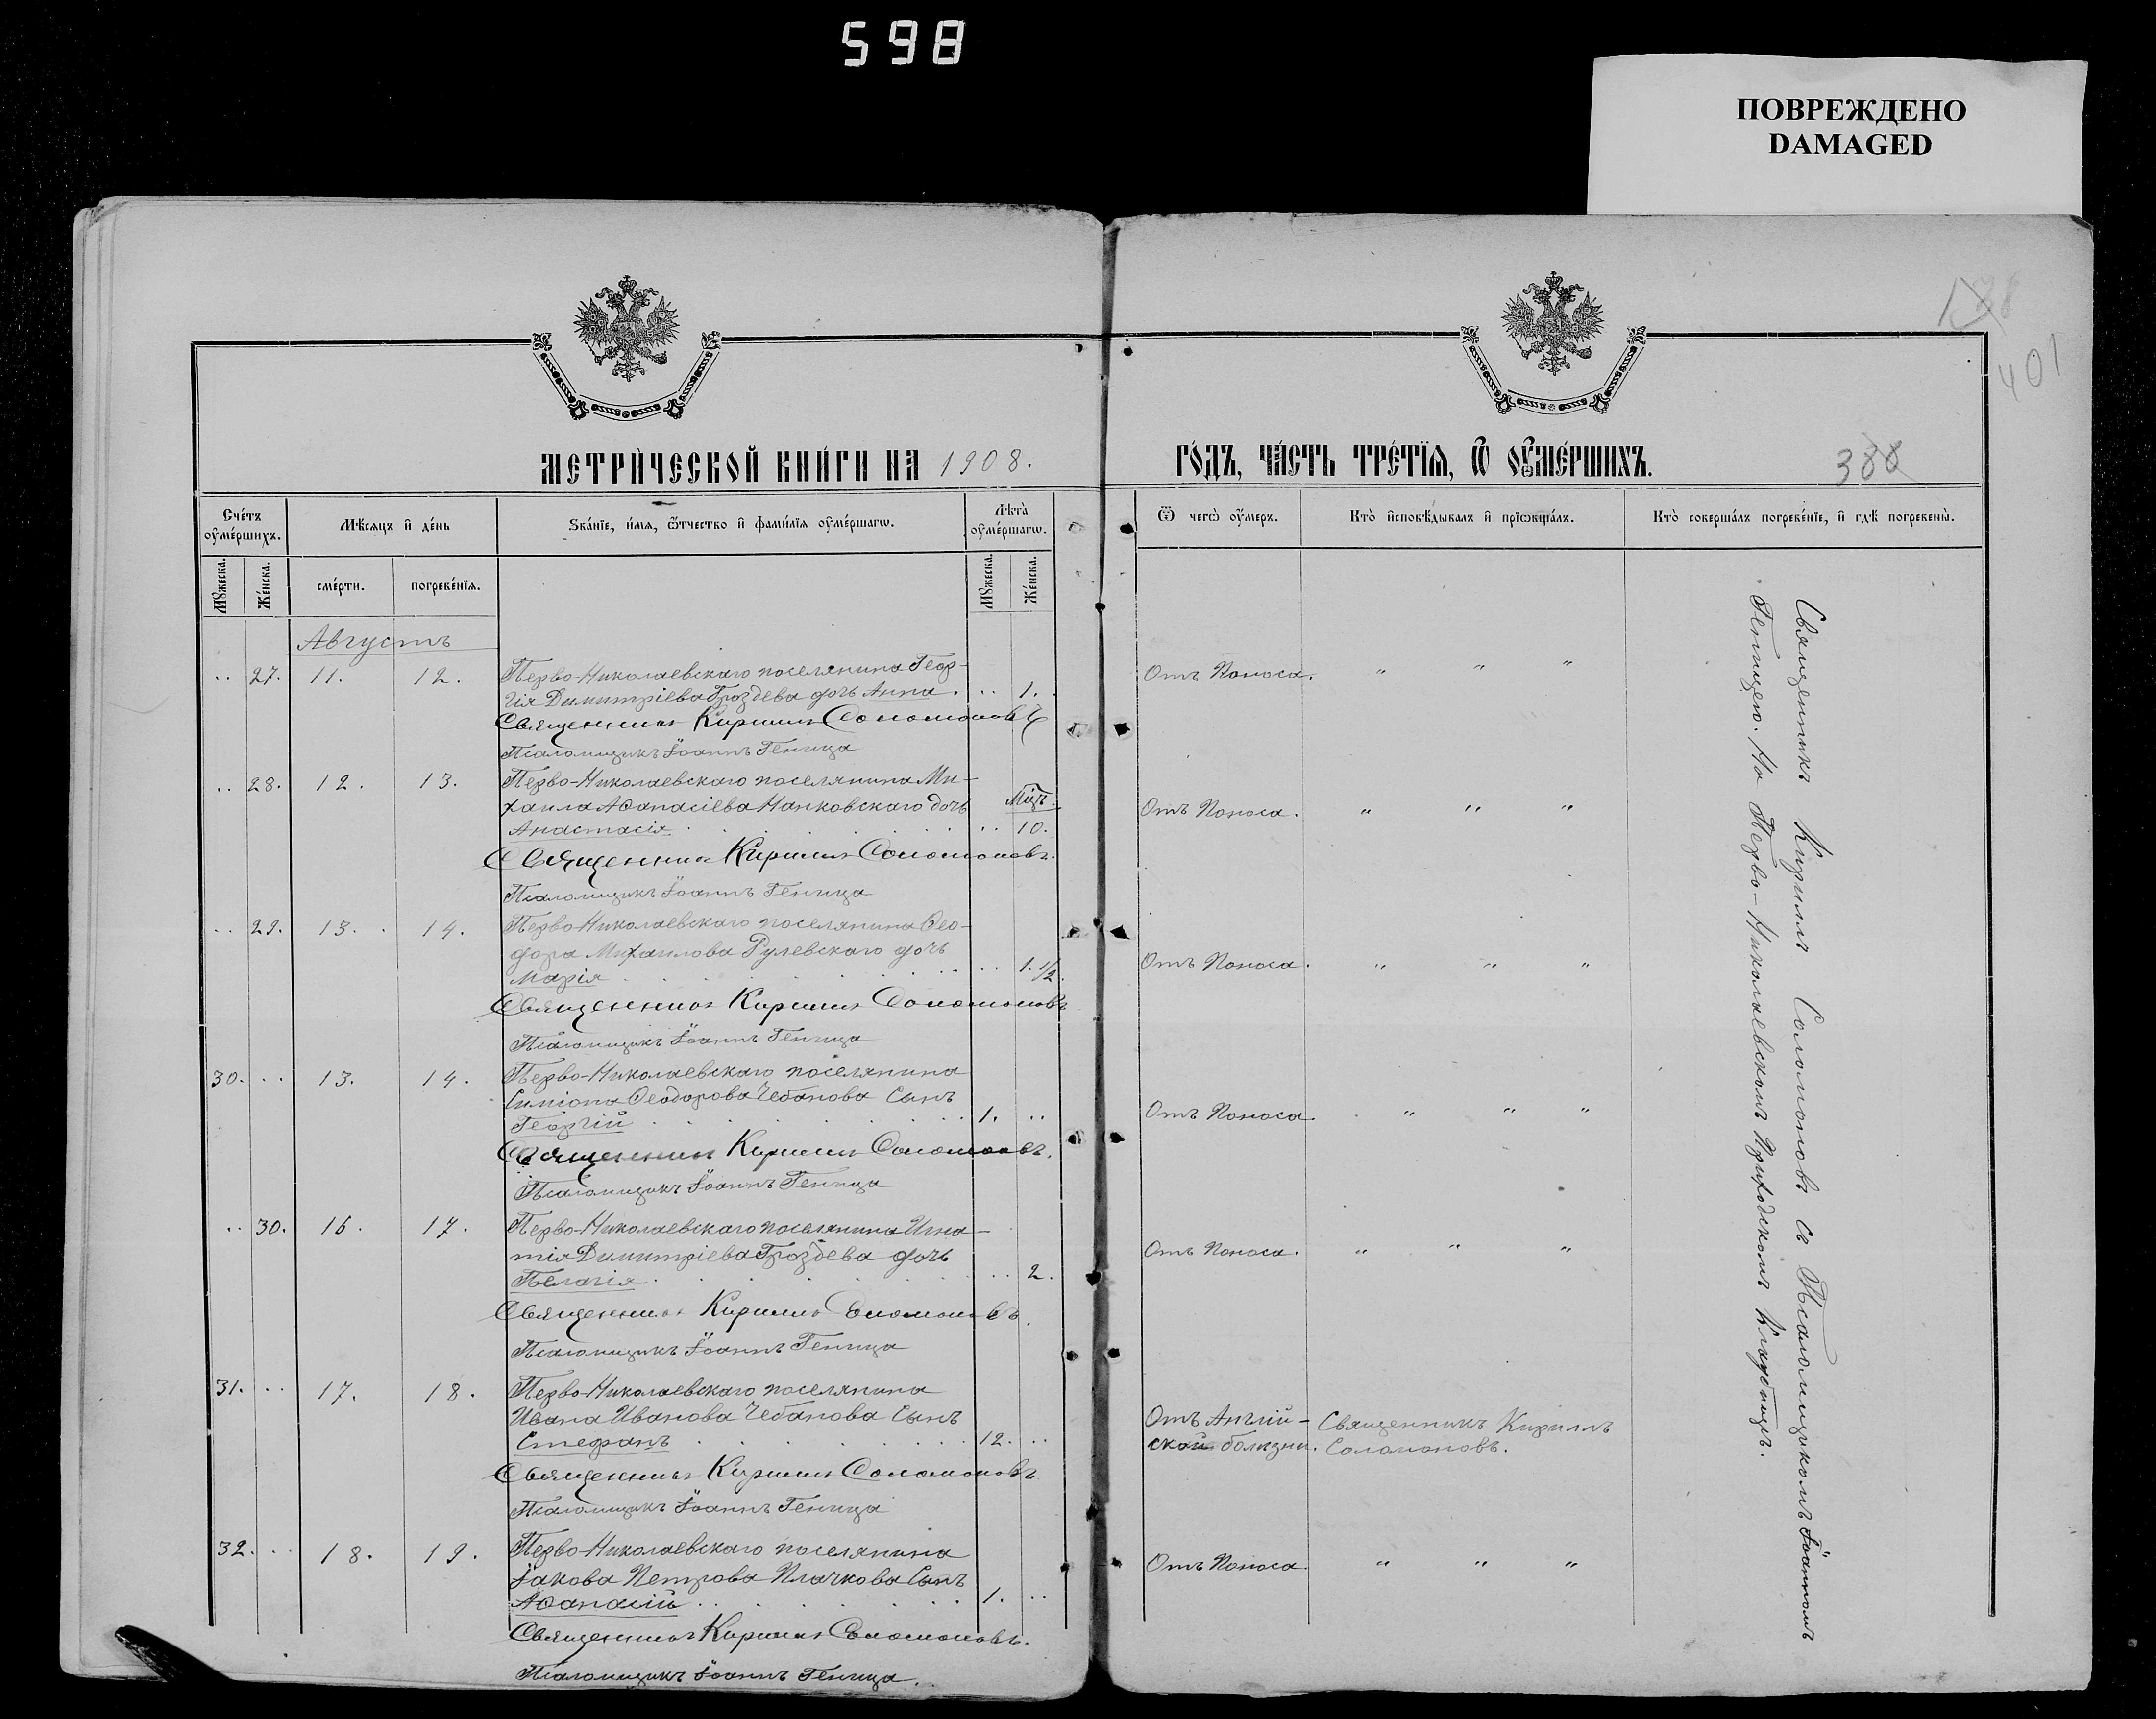 598
ПОВРЕЖДЕНО
DAMAGED
138
401
МЕТРИЧЕСКОЙ КНИГИ НА 1908.
ГОДЪ, ЧАСТЬ ТРЕТІЯ, Ѿ ОУМЕРШИХЪ.
388
Счетъ оумершихъ.
Мѣсяцъ и день
Званіе, имя, ѿтчество и фамилія оумершагѡ.
Лѣта оумершагѡ.
Ѿ чегѡ оумеръ.
Кто исповѣдывалъ и пріѡбщалъ.
Кто совершалъ погребеніе, и гдѣ погребены.
Мꙋжеска.
Женска.
смерти.
погребенія.
Мꙋжеска.
Женска.
Августъ
.. 27. 11. 12. Перво-Николаевскаго поселянина Геор-
гія Димитріева Гроздева дочь Анна. .. 1. Отъ Поноса. " " "
Священникъ Кириллъ Соломоновъ
Псаломщикъ Іоаннъ Геница
.. 28. 12. 13. Перво-Николаевскаго поселянина Ми-
хаила Аѳанасіева Нанковскаго дочь Мцъ.
Анастасія .. 10. Отъ Поноса. " " "
Священникъ Кириллъ Соломоновъ.
Псаломщикъ Іоаннъ Геница
.. 29. 13. 14. Перво-Николаевскаго поселянина Ѳео-
дора Михаилова Рулевскаго дочь
Марія .. 1.1/2. Отъ Поноса. " " "
Священникъ Кириллъ Соломоновъ
Псаломщикъ Іоаннъ Геница
30. .. 13. 14. Перво-Николаевскаго поселянина
Симіона Ѳеодорова Чебанова Сынъ
Георгій 1. .. Отъ Поноса. " " "
Священникъ Кириллъ Соломоновъ.
Псаломщикъ Іоаннъ Геница
.. 30. 16. 17. Перво-Николаевскаго поселянина Игна-
тія Димитріева Гроздева дочь
Пелагія .. 2. Отъ Поноса. " " "
Священникъ Кириллъ Соломоновъ.
Псаломщикъ Іоаннъ Геница
31. .. 17. 18. Перво-Николаевскаго поселянина
Ивана Иванова Чебанова Сынъ
Стефанъ 12. ..
Отъ Англій-
ской болѣзни.
Священникъ Кириллъ
Соломоновъ.
Священникъ Кириллъ Соломоновъ
Псаломщикъ Іоаннъ Геница
32. .. 18. 19. Перво-Николаевскаго поселянина
Іакова Петрова Плачкова Сынъ
Аѳанасій 1. .. Отъ Поноса. " " "
Священникъ Кириллъ Соломоновъ.
Псаломщикъ Іоаннъ Геница.
Священникъ Кириллъ Соломоновъ съ Псаломщикомъ Іоанномъ
Геницею. На Перво-Николаевскомъ Приходскомъ Кладбищѣ.